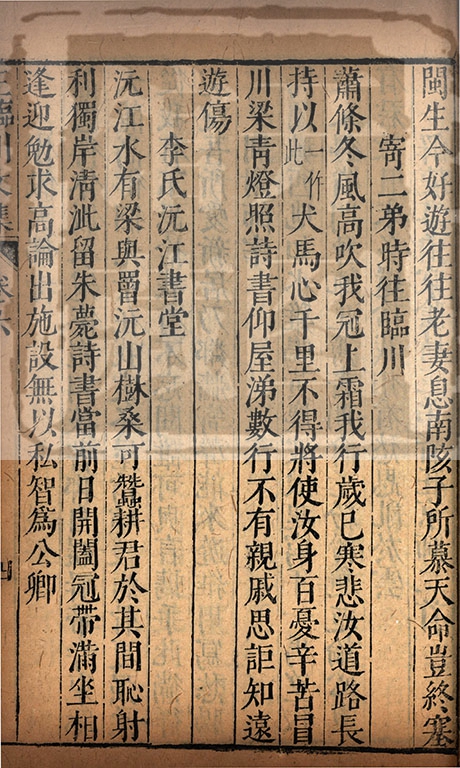 閩生今好遊往往老妻息南陔子所慕天命豈終塞
寄二弟時往臨川
蕭條冬風高吹我冠上霜我行歲已寒悲汝道路長
持以一作此犬馬心千里不得將使汝身百憂辛苦冒
川梁青燈照詩書仰屋涕數行不有親戚思詎知遠
遊傷
李氏沅江書堂
沅江水有梁與罾沅山樹桑可蠶耕君於其間恥射
利獨岸清泚留朱甍詩書當前日開闔冠帶滿坐相
逢迎勉求高論出施設無以私智爲公卿
王臨川文集 卷六 四